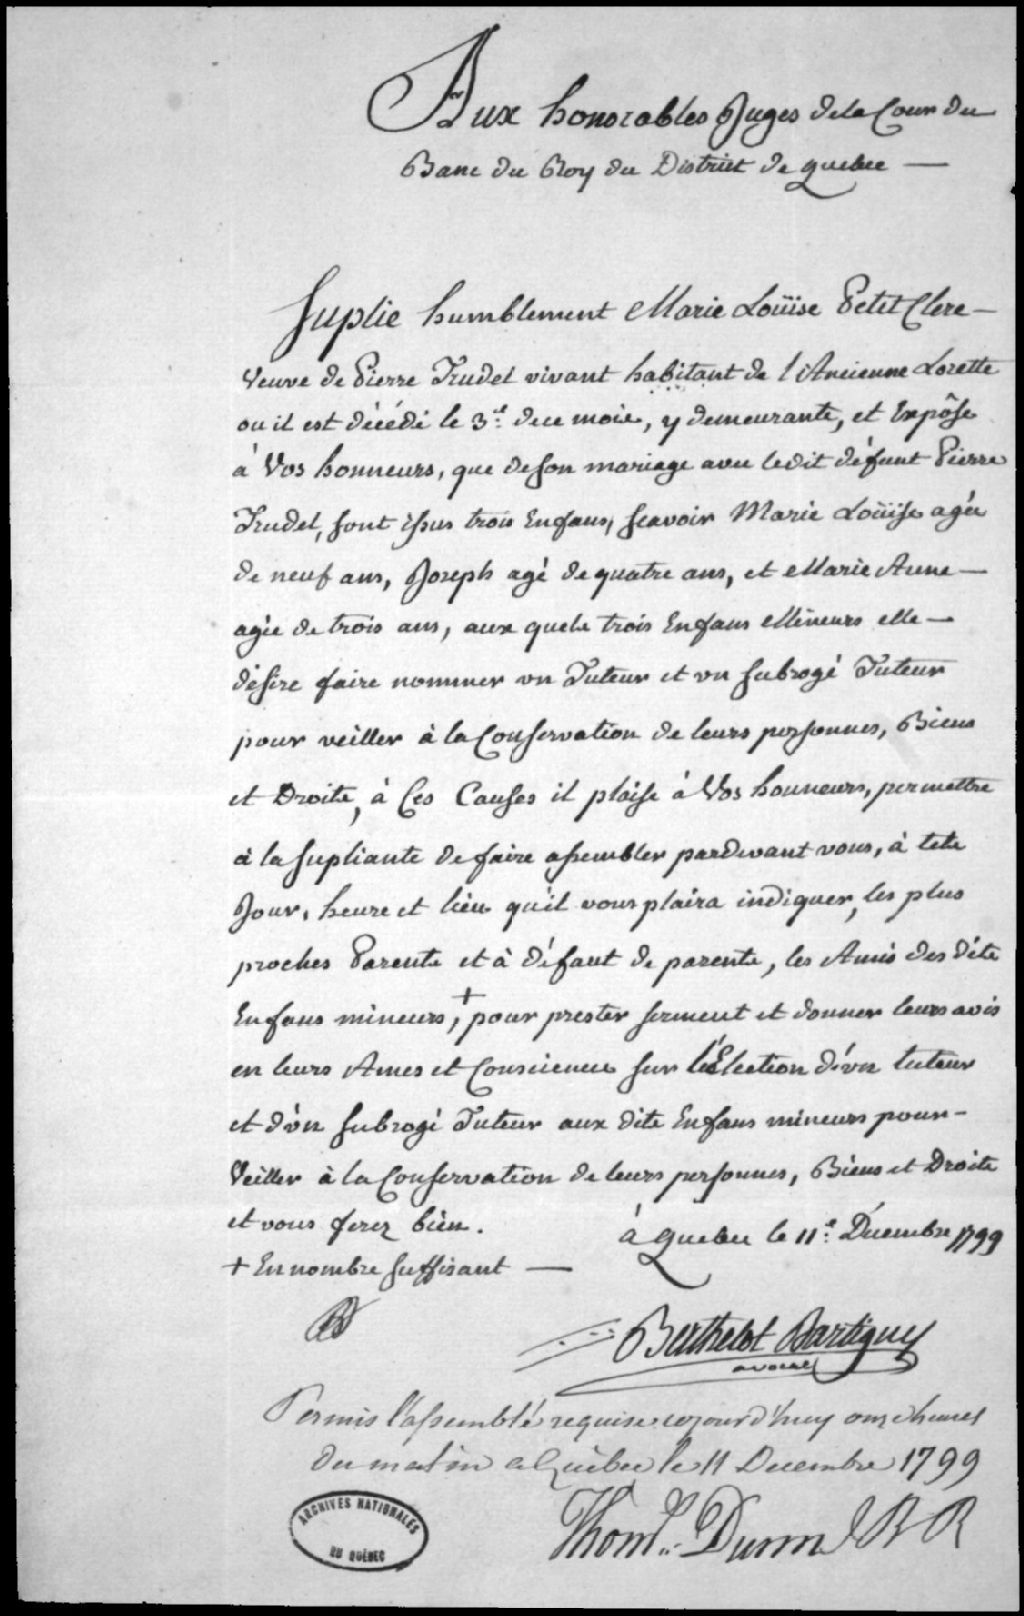 Aux honorables Juges de la Cour du
Banc du Roy du District de Quebec —
Suplie humblement Marie Loüise Petit Clerc —
Veuve de Pierre Trudel vivant habitant de l'Ancienne Lorette
ou il est décédé le 3.e de ce mois, y demeurante, et Expôse
à Vos honneurs, que de son mariage avec ledit défunt Pierre
Trudel, sont issus trois Enfans, scavoir Marie Loüise agée
de neuf ans, Joseph agé de quatre ans, et Marie Anne —
agée de trois ans, aux quels trois Enfans Mineurs elle —
désire faire nommer un Tuteur et un subrogé Tuteur
pour veiller à la Conservation de leurs personnes, Biens
et Droits, à Ces Causes il plaise à Vos honneurs, permettre
à la supliante de faire assembler pardevant vous, à tels
Jour, heure et lieu qu'il vous plaira indiquer, les plus
proches Parents et à défaut de parents, les Amis des dits
Enfans mineurs, + pour prester serment et donner leurs avis
en leurs Ames et Consciences sur l'Election d'un tuteur
et d'un subrogé Tuteur aux dits Enfans mineurs pour -
Veiller à la Conservation de leurs personnes, Biens et Droits
et vous ferez bien. à Quebec le 11.e Décembre 1799
+ En nombre suffisant —
Berthelot Dartigny
avocat
Permis l'assemblé requise cejourd'huy onze heures
du matin a Québec le 11 Decembre 1799
Thom.s Dunn J B R
ARCHIVES NATIONALES
DU QUÉBEC